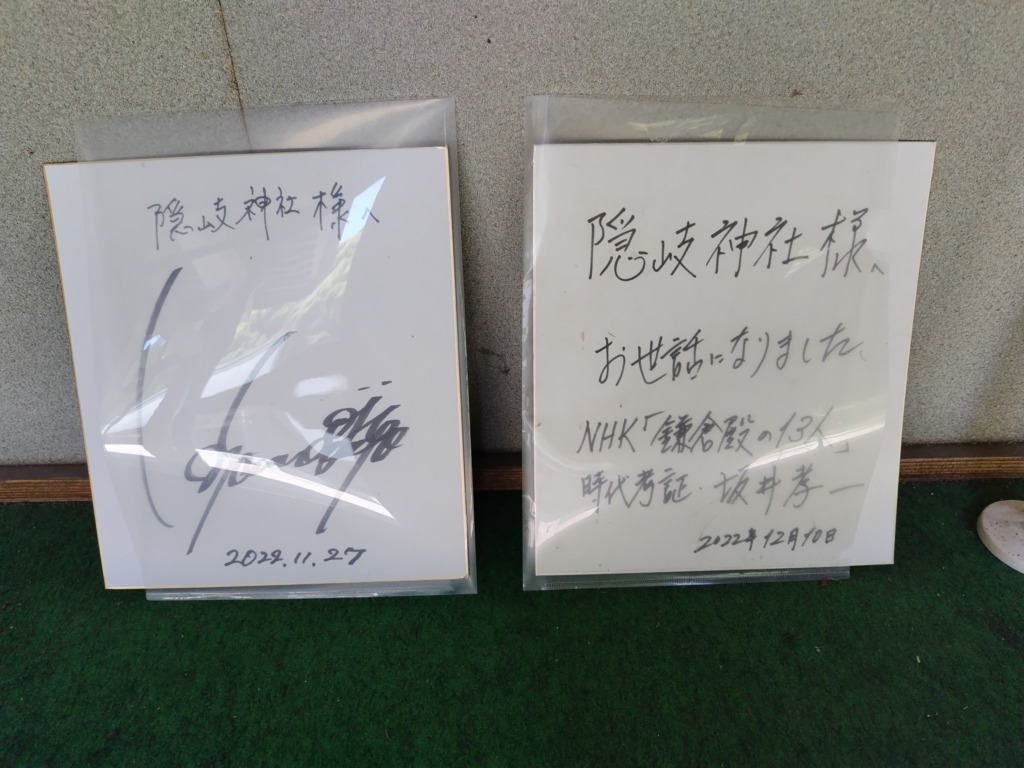 隠岐神社様へ
2022.11.27
隠岐神社様へ
お世話になりました。
NHK「鎌倉殿の13人」
時代考証・坂井孝一
2022年12月10日